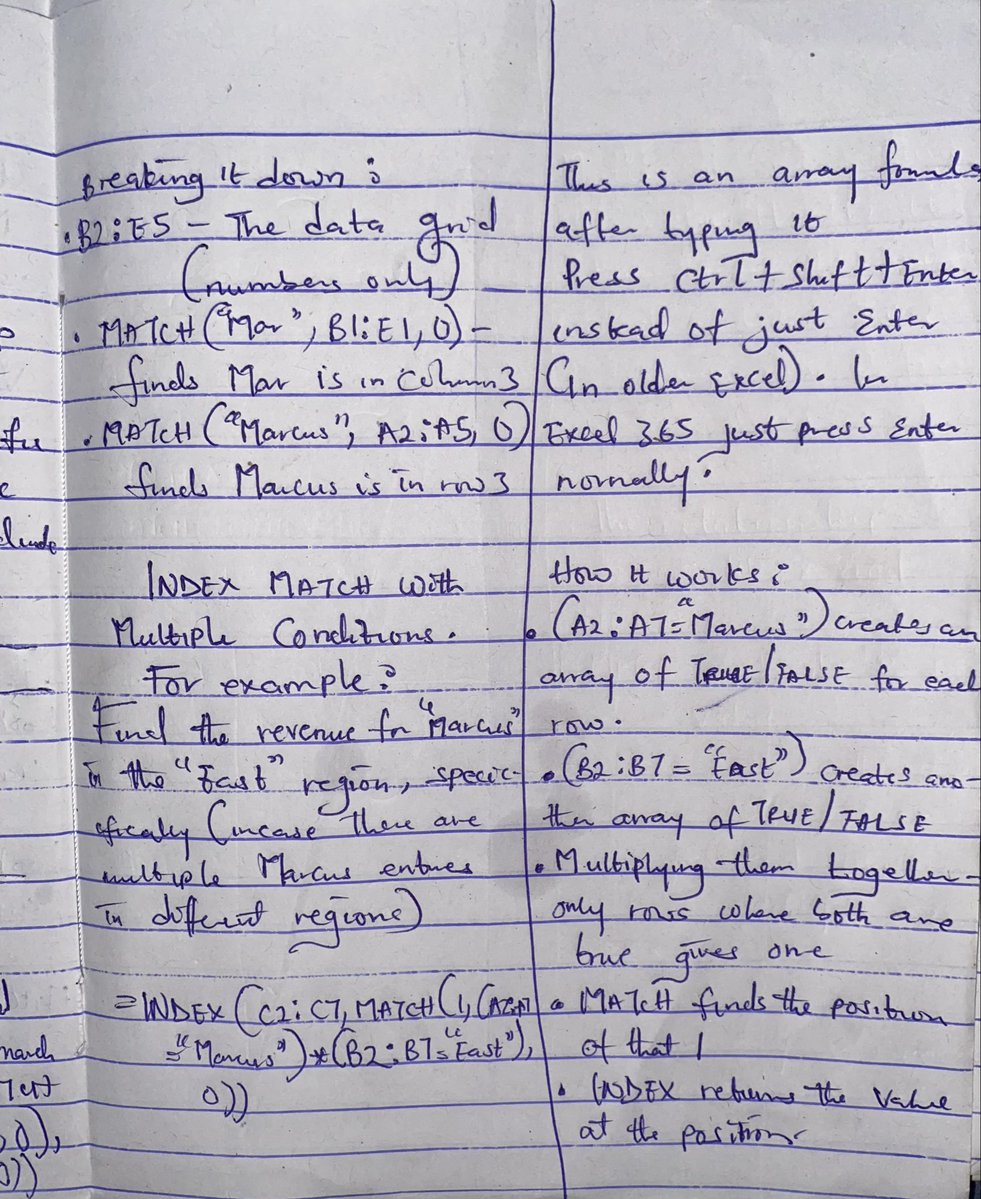 Breaking it down :
• B2:E5 – The data grid
(numbers only)
• MATCH("Mar", B1:E1, 0) –
finds Mar is in column 3
• MATCH("Marcus", A2:A5, 0)
finds Marcus is in row 3
INDEX MATCH with
Multiple Conditions.
For example :
Find the revenue for "Marcus"
in the "East" region, specic-
fically (incase there are
multiple Marcus entries
in different regions)
=INDEX(C2:C7, MATCH(1, (A2:A7
="Marcus")*(B2:B7="East"),
0))
This is an array formula
after typing it
Press Ctrl + Shift + Enter
instead of just Enter
(In older Excel). In
Excel 365 just press Enter
normally.
How it works :
• (A2:A7="Marcus") creates an
array of TRUE/FALSE for each
row.
• (B2:B7 = "East") creates ano-
ther array of TRUE/FALSE
• Multiplying them together -
only rows where both are
true gives one
• MATCH finds the position
of that 1
• INDEX returns the value
at the position.